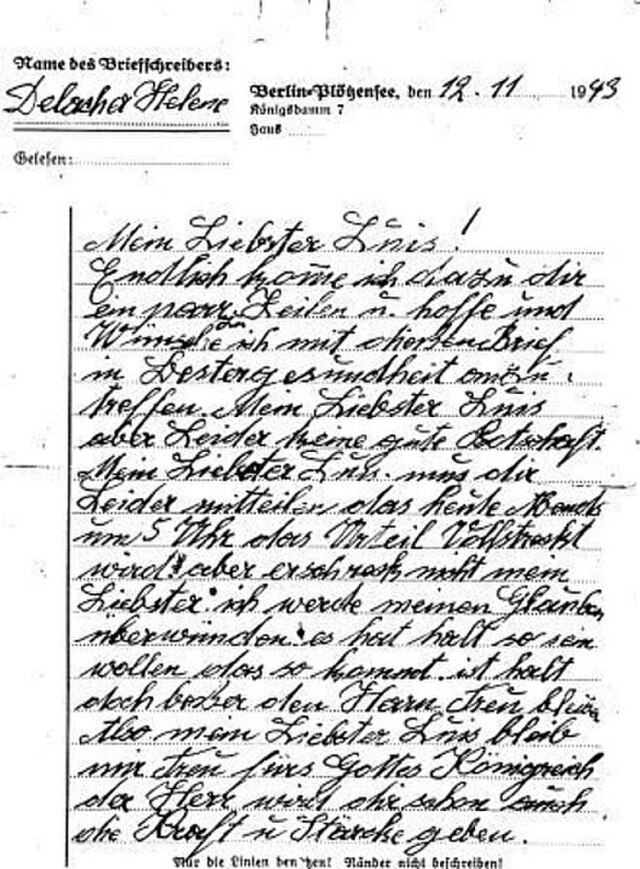 Name des Briefschreibers:
Delacher Helene
Berlin-Plötzensee, den 12. 11 1943
Königsdamm 7
Haus
Gelesen:
Mein Liebster Luis!
Endlich kome ich dazu dir
ein parr Zeilen u. hoffe und
Wünsche ich mit diesen Brief
in Bester gesundheit anzu
treffen. Mein Liebster Luis
aber Leider keine gute Botschaft.
Mein Liebster Luis. mus dir
Leider mitteilen das heute Abends
um 5 Uhr das Urteil Vollstreckt
wird! aber erschreck nicht mein
Liebster. ich werde meinen Glauben
überwünden. es hat halt so sein
wollen das so kommt. ist halt
doch besser den Herrn Treu bleiben
Also mein Liebster Luis bleib
mir Treu fürs Gottes Königreich
der Herr wird dir schon auch
die Kraft u Stärcke geben.
Nur die Linien benutzen! Ränder nicht beschreiben!